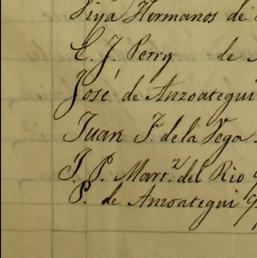 Viya Hermanos de
C. J. Perry de
José de Anzoategui
Juan F. de la Vega
J. P. Mart.z del Rio
P. de Anzoategui